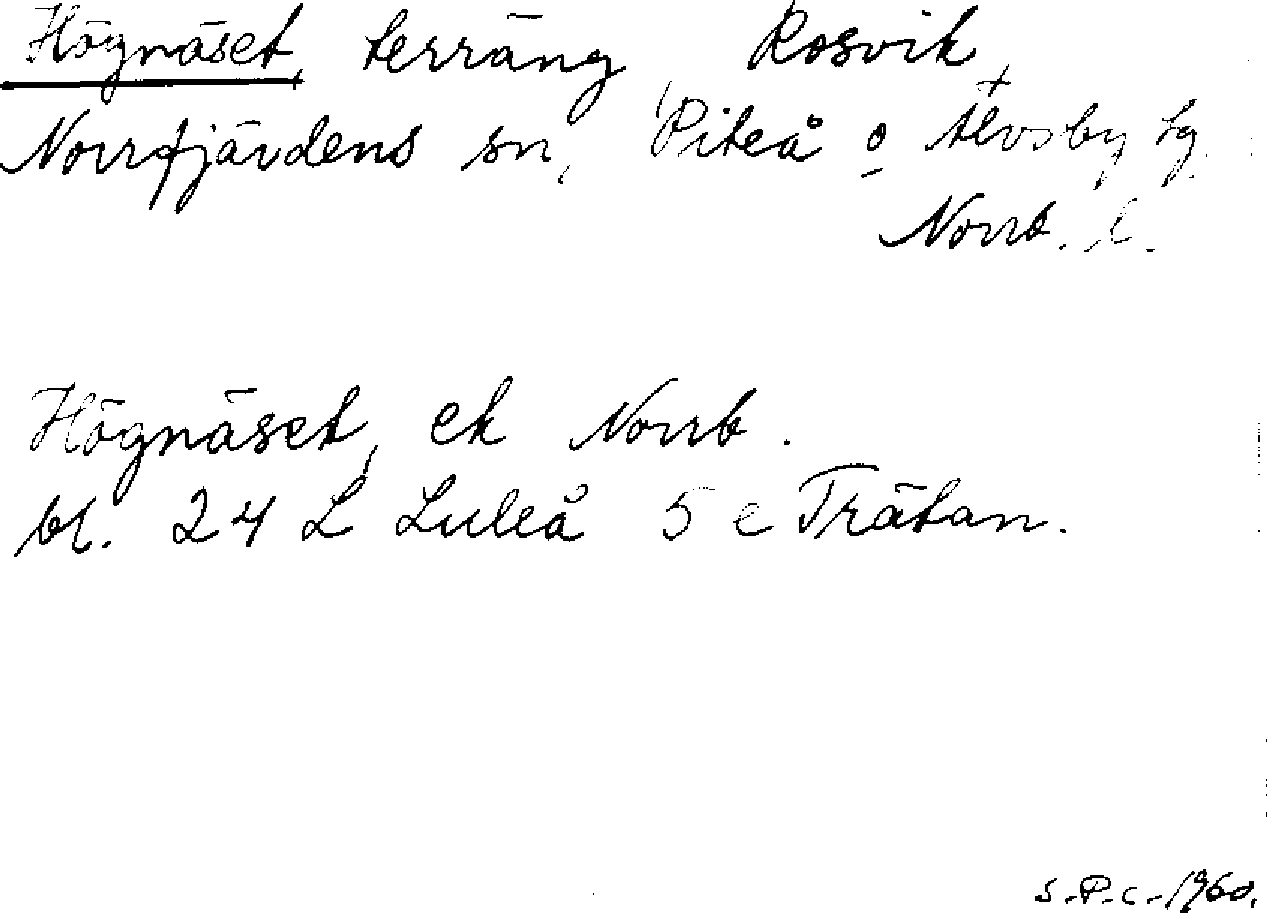 Högnäset, terräng, Rosvik,
Norrfjärdens sn, Piteå o Älvsby tg.
Norrb. l.
Högnäset, ek Norrb.
bl. 24 L Luleå 5 c Trätan.
S.P.C. 1960.